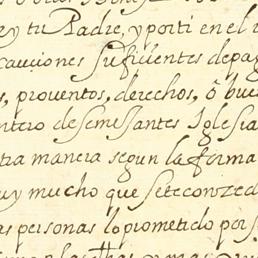 ey tu Padre, y porti en el
cauciones suficientes depag
s, proventos, derechos, ô bue
ntero desemejantes Iglesia
tra manera segun la forma
uy mucho que seteconzed
as personas lo prometido por s